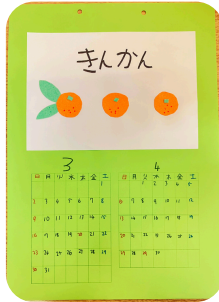 きんかん
3
日 月 火 水 木 金 土
1
2 3 4 5 6 7 8
9 10 11 12 13 14 15
16 17 18 19 20 21 22
23 24 25 26 27 28 29
30 31
4
日 月 火 水 木 金 土
1 2 3 4 5
6 7 8 9 10 11 12
13 14 15 16 17 18 19
20 21 22 23 24 25 26
27 28 29 30